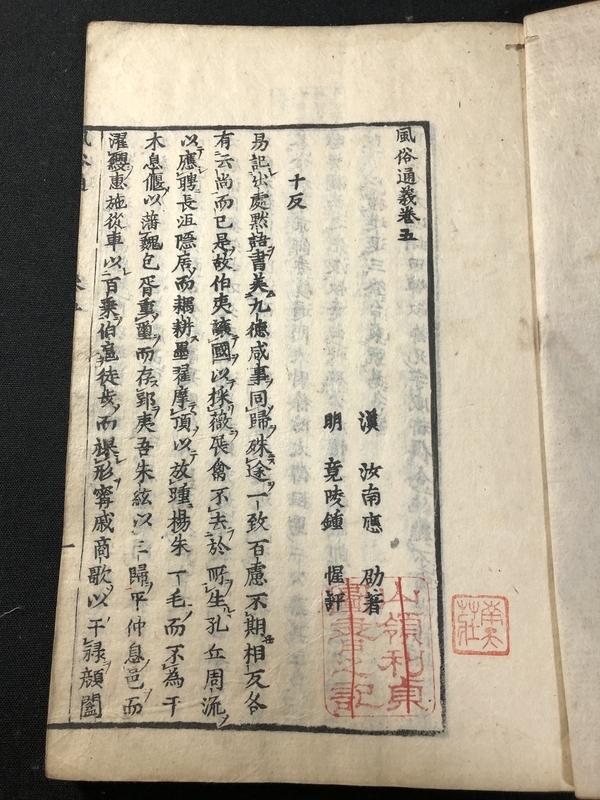 風俗通義卷五
漢 汝南應 劭著
明 竟陵鍾 惺評
十反
易記出處默語書美九德咸事同歸殊途一致百慮不期相反各
有云尚而已是故伯夷讓國以採薇展禽不去於所生孔丘周流
以應聘長沮隱居而耦耕墨翟摩頂以放踵楊朱一毛而不為干
木息偃以藩魏包胥重繭而存郢夷吾朱紘以三歸平仲息邑而
濯纓惠施從車以百乘伯 徒步而 形甯戚商歌以干祿顏闔
山領利貞
圖書之記